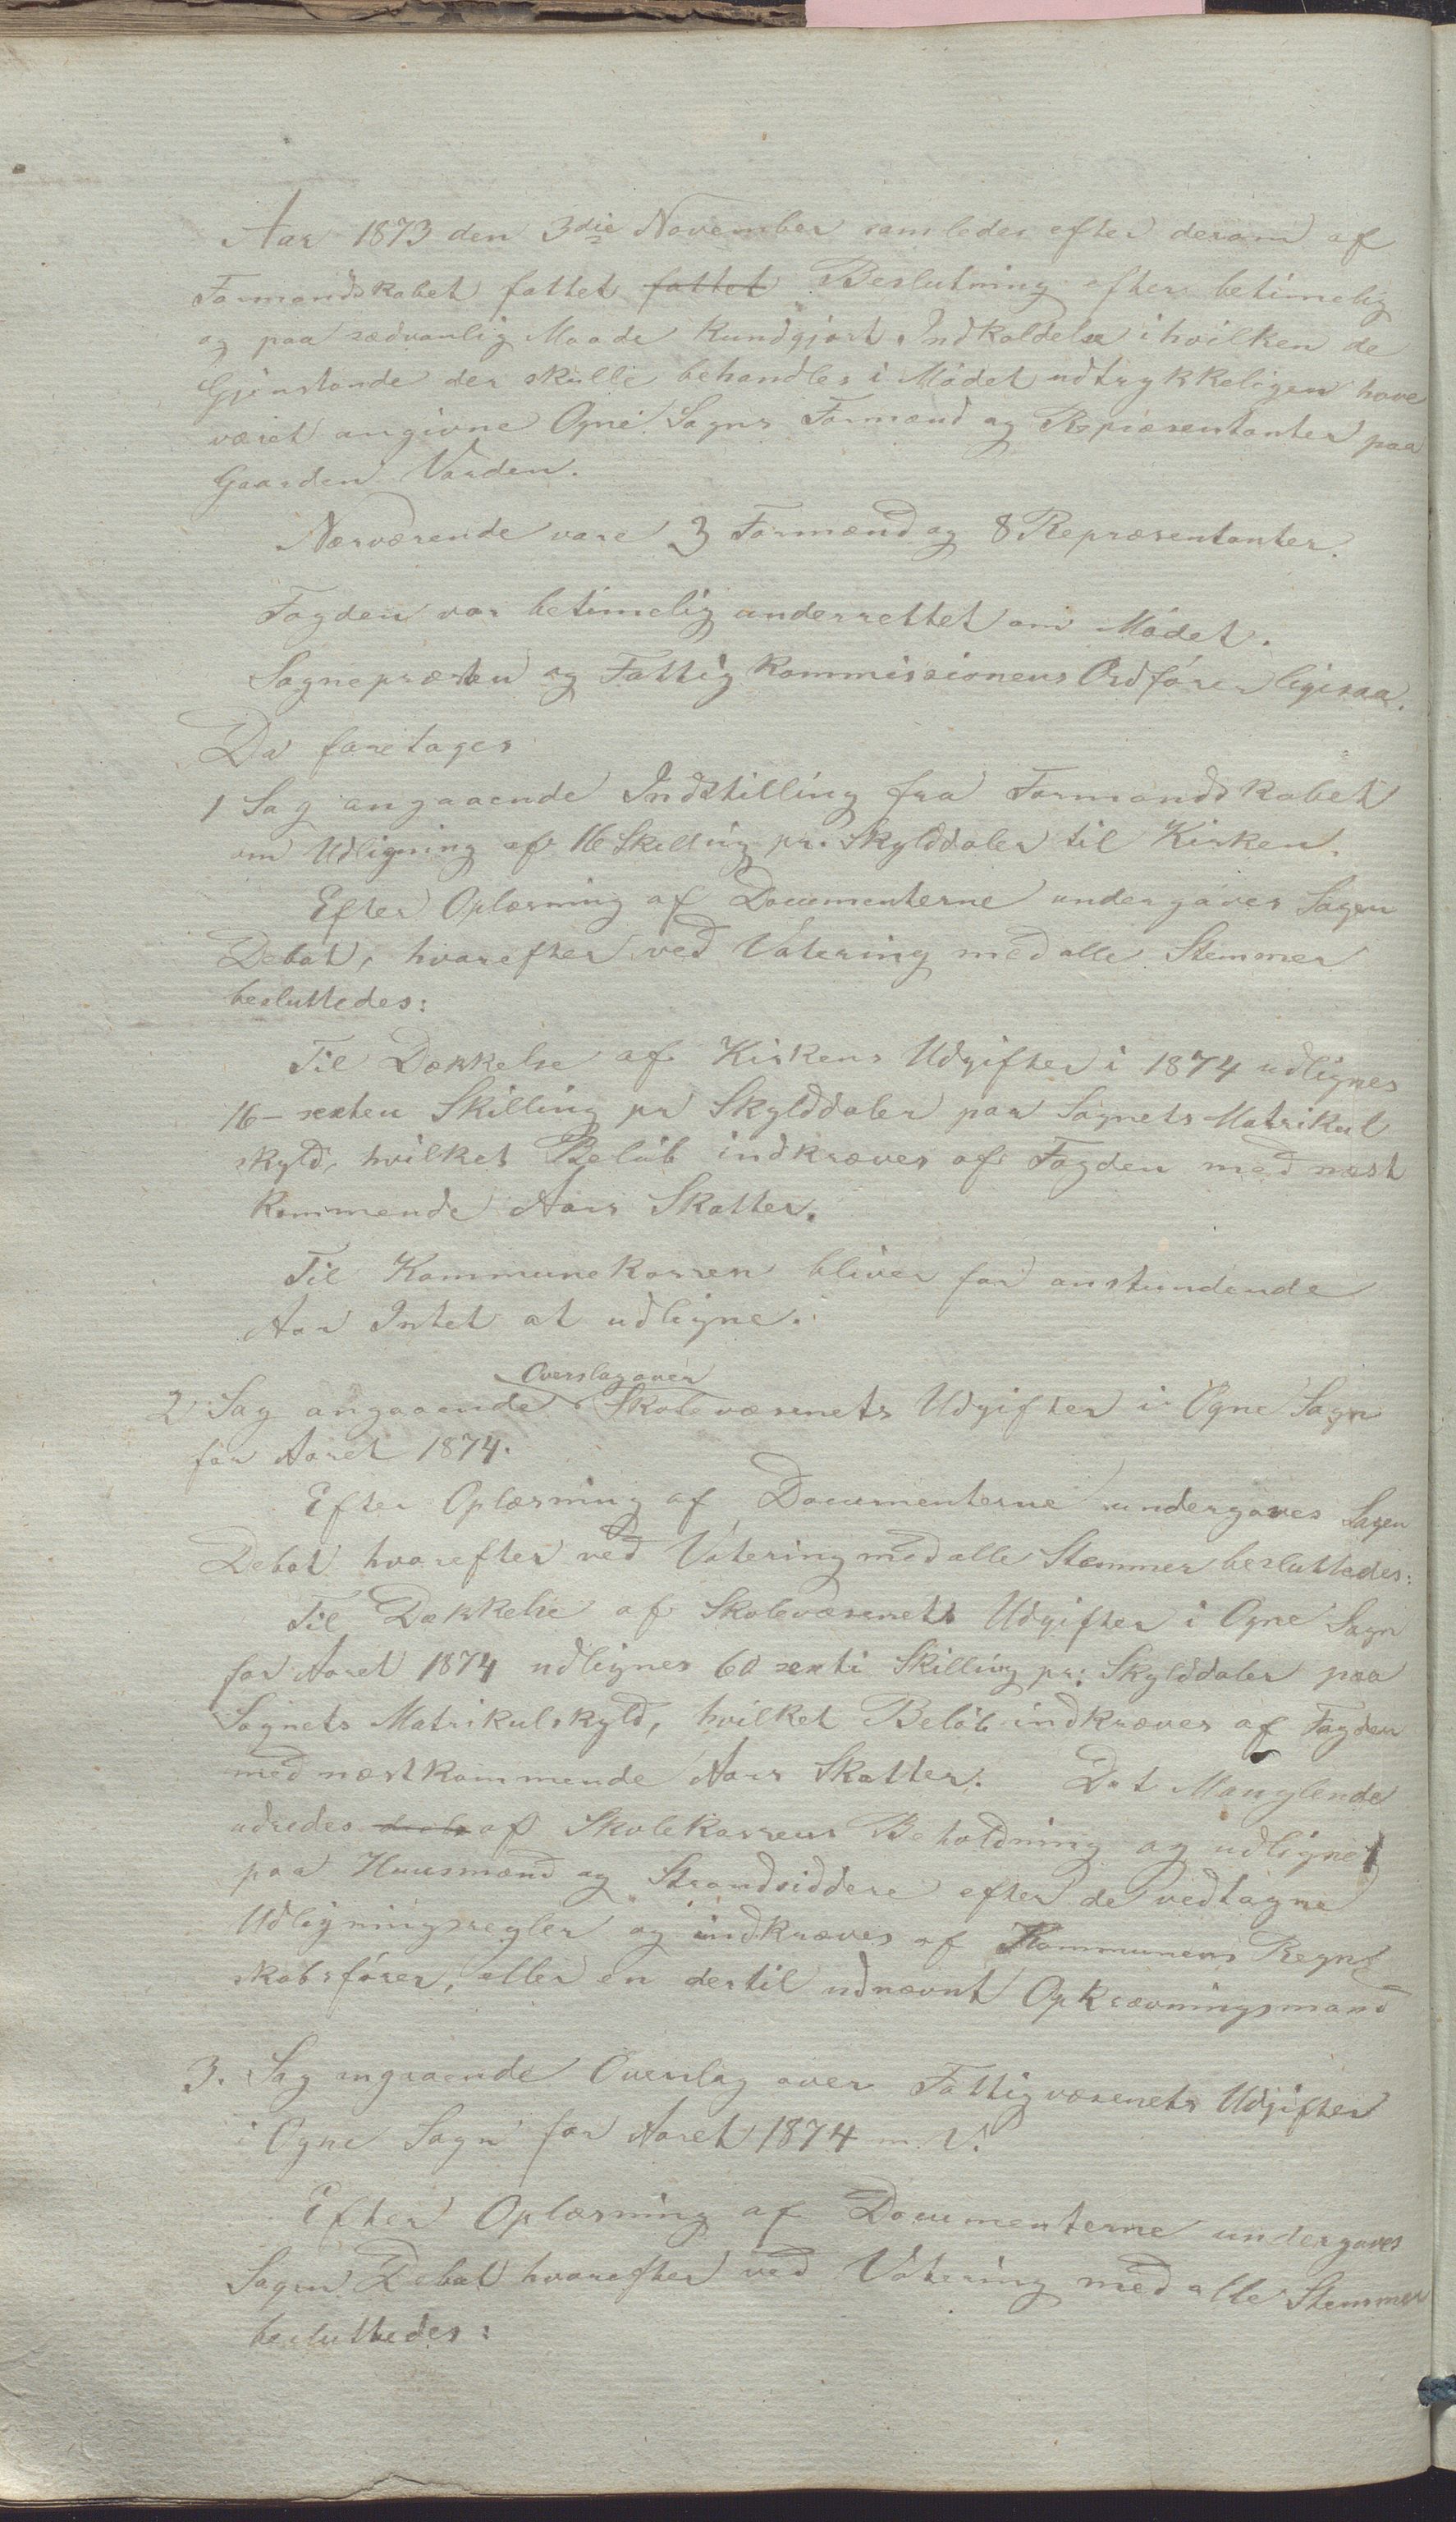 Aar 1873 den 3die November samledes efter derom af
Formandskabet fattet fattet Beslutning efter betimelig
og paa sædvanlig Maade Kundgjort Indkaldelse i hvilken de
Gjenstande der skulle behandles i Mødet udtrykkeligen have
været angivne Ogne Sogns Formænd og Repræsentanter paa
Gaarden Varden.
Nærværende vare 3 Formænd og 8 Repræsentanter.
Fogden var betimelig underrettet om Mødet.
Sognepræsten og Fattigkommissionens Ordfører ligesaa.
Da foretages
1 Sag angaaende Indstilling fra Formandskabet
om Udligning af 16 Skilling pr. Skylddaler til Kirken.
Efter Oplæsning af Documenterne undergaves Sagen
Debat, hvorefter ved Votering med alle Stemmer
besluttedes:
Til Dækkelse af Kirkens Udgifter i 1874 udlignes
16 - sexten Skilling pr Skylddaler paa Sognets Matrikul
skyld, hvilket Beløb indkræves af Fogden med næst
kommende Aars Skatter.
Til Kommunekassen bliver for anstundende
Aar Intet at udligne.
Overslag over
2 Sag angaaende Skolevæsenets Udgifter i Ogne Sogn
for Aaret 1874.
Efter Oplæsning af Documenterne undergaves Sagen
Debat hvorefter ved Votering med alle Stemmer besluttedes:
Til Dækkelse af Skolevæsenets Udgifter i Ogne Sogn
for Aaret 1874 udlignes 60 sexti Skilling pr: Skylddaler paa
Sognets Matrikulskyld, hvilket Beløb indkræves af Fogden
med næstkommende Aars Skatter. Det Manglende
udredes deels af Skolekassens Beholdning og udlignes
paa Huusmænd og Strandsiddere efter de vedtagne
Udligningsregler og indkræves af Kommunens Regn-
skabsfører, eller en dertil udnævnt Opkrævningsmand
3. Sag angaaende Overslag over Fattigvæsenets Udgifter
i Ogne Sogn for Aaret 1874 m. V.
Efter Oplæsning af Documenterne undergaves
Sagen Debat hvorefter ved Votering med alle Stemmer
besluttedes: